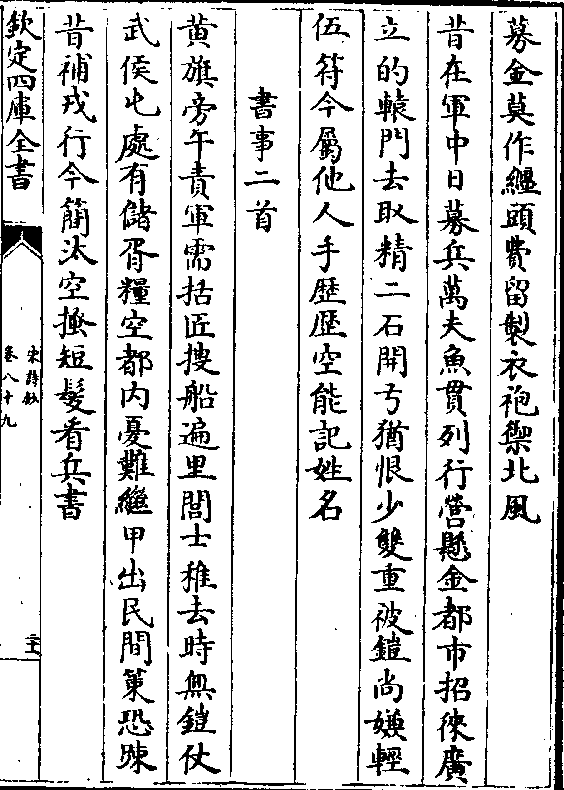 募金莫作纒頭費留製衣袍禦北風
昔在軍中日募兵萬夫魚貫列行營懸金都市招徠廣
立的轅門去取精二石開弓猶恨少雙重被鎧尚嫌輕
伍符今屬他人手歴歴空能記姓名
書事二首
黄旗旁午責軍需括匠搜船遍里閭士稚去時無鎧仗
武侯屯處有儲胥糧空都内憂難繼甲出民間策恐踈
昔補戎行今簡汰空搔短髮看兵書
欽定四庫全書
宋詩鈔
卷八十九